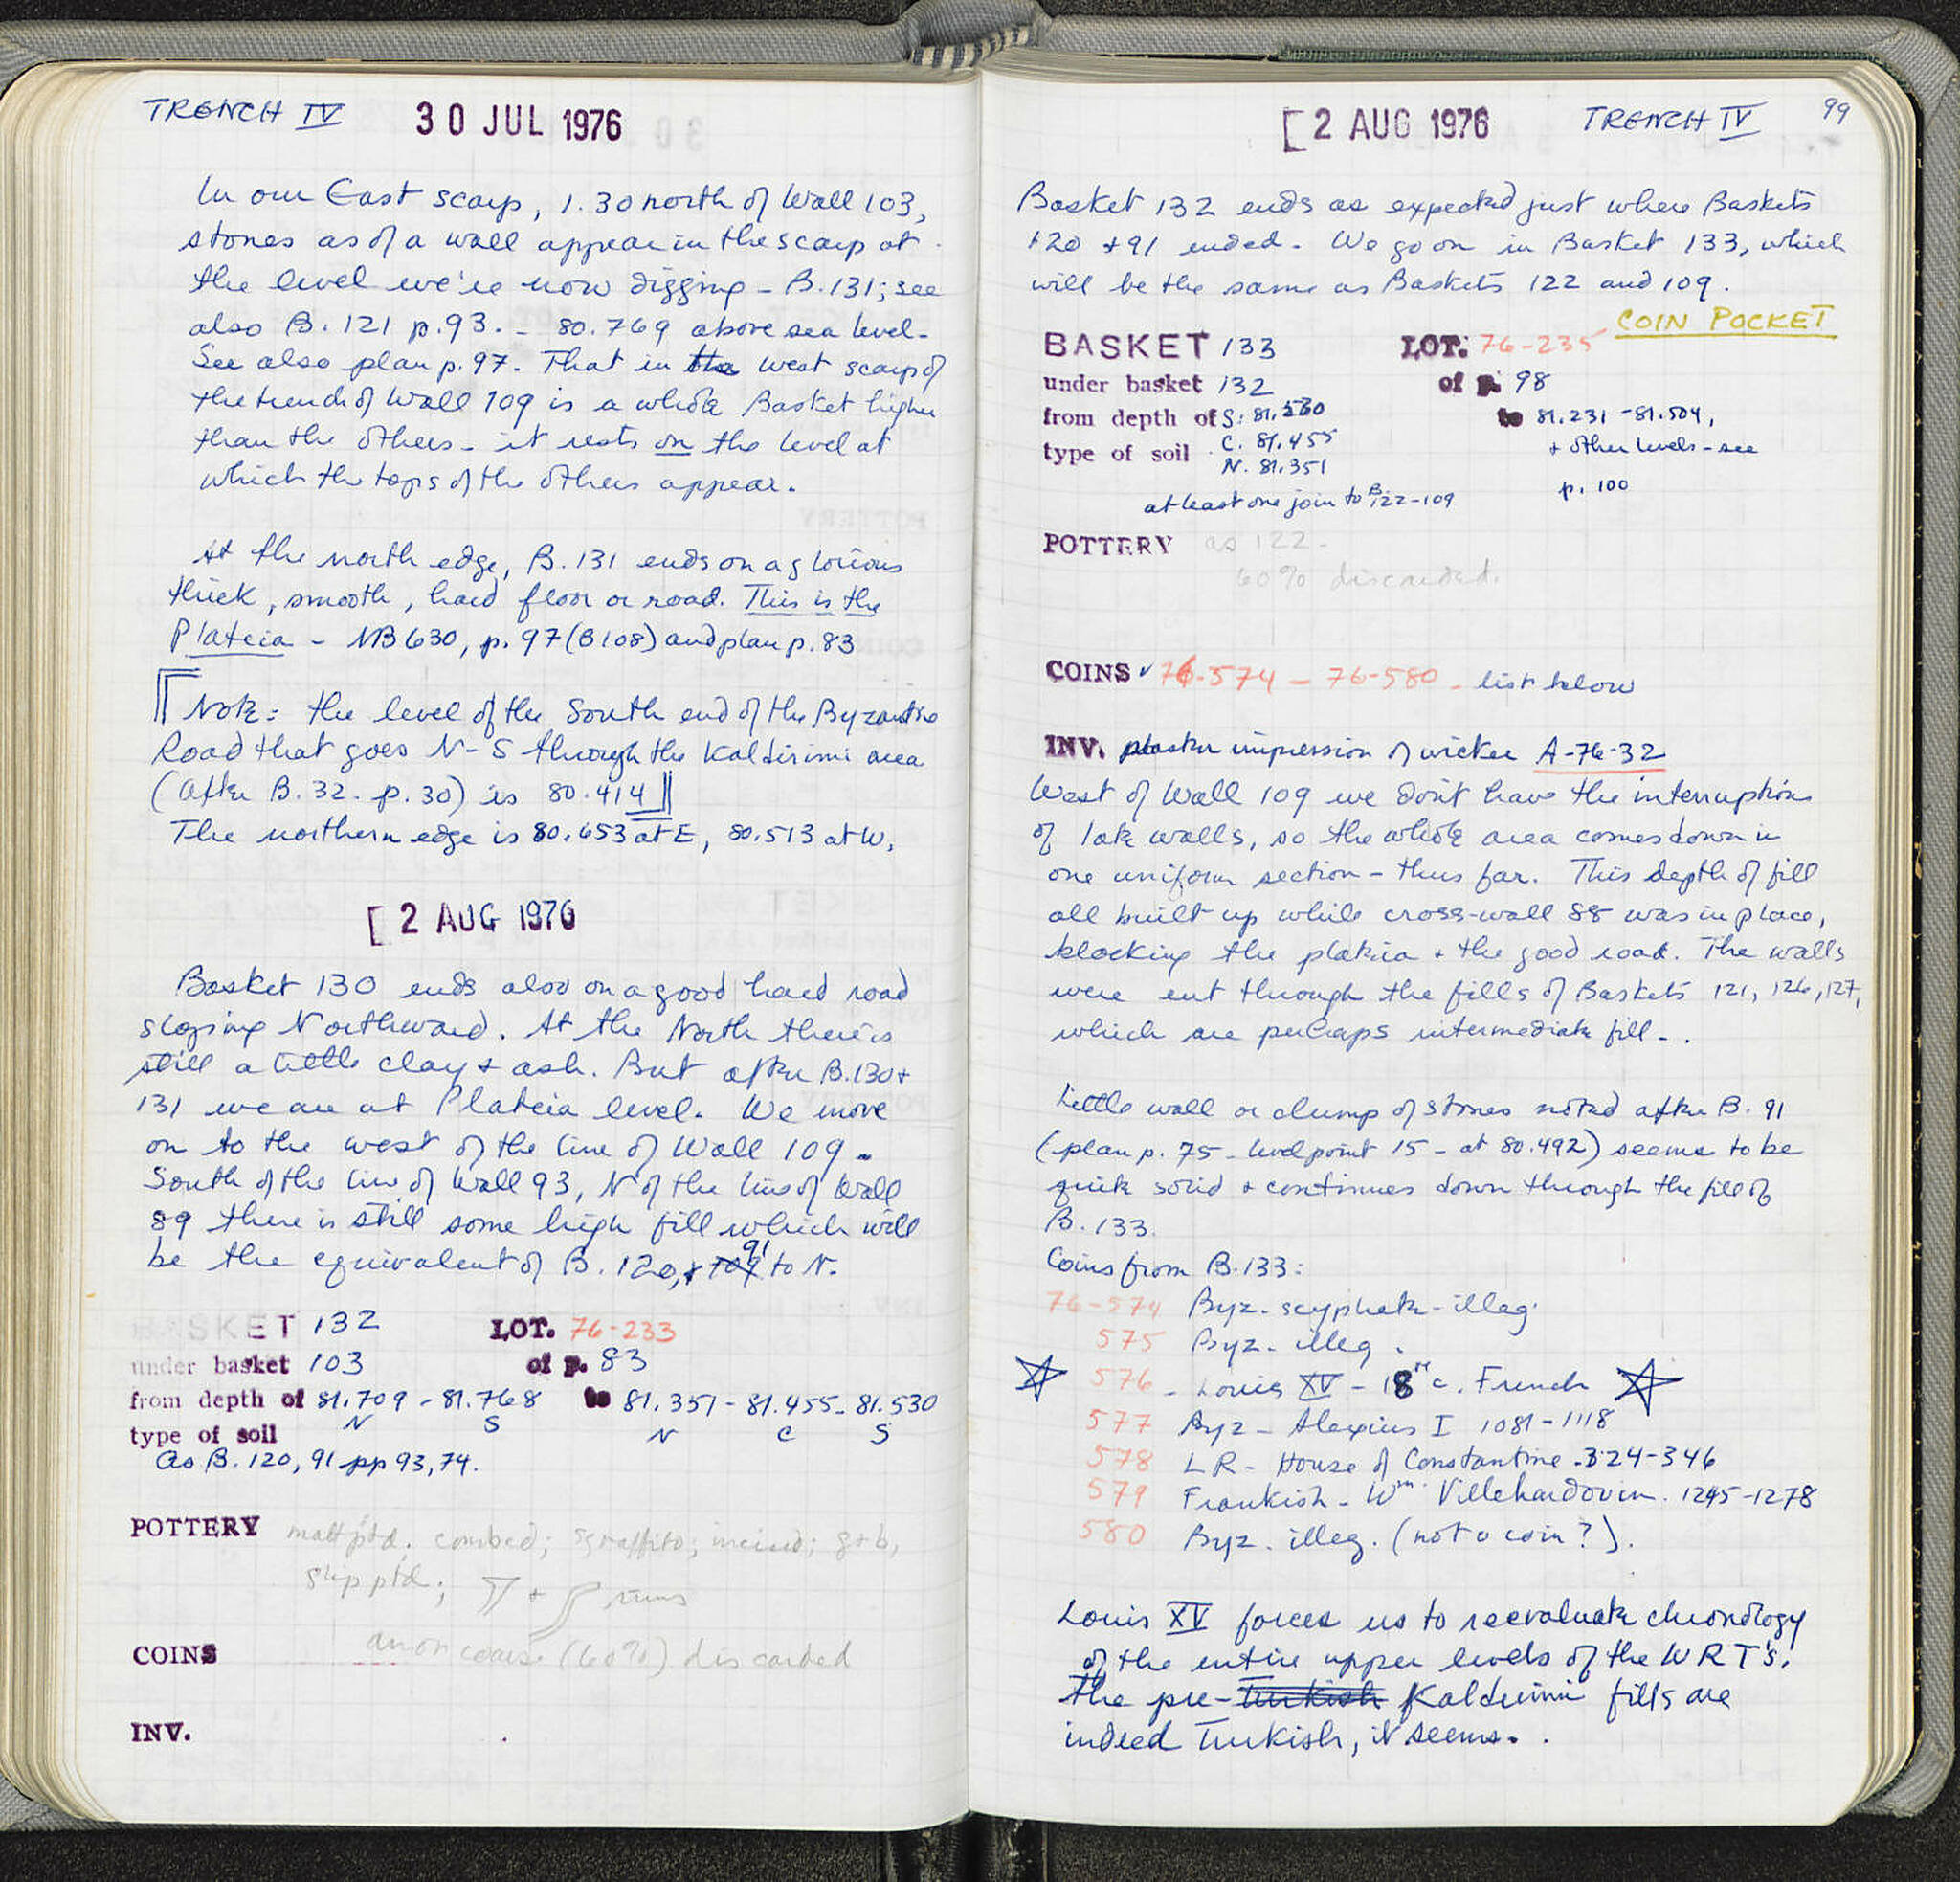 TRENCH IV 30 JUL 1976
In our East scarp, 1.30 north of Wall 103,
stones as of a wall appear in the scarp at
the level we're now digging - B.131; see
also B. 121 p.93. - 80.769 above sea level.
See also plan p.97. That in the west scarp of
the trench of Wall 109 is a whole Basket higher
than the others - it rests on the level at
which the tops of the others appear.
At the north edge, B. 131 ends on a glorious
thick, smooth, hard floor or road. This is the
Plateia - NB 630, p. 97 (B108) and plan p. 83
Note: the level of the South end of the Byzantine
Road that goes N-S through the Kaldirimi area
(after B. 32. p. 30) is 80.414
The northern edge is 80.653 at E, 80.513 at W.
[2 AUG 1976
Basket 130 ends also on a good hard road
sloping Northward. At the North there is
still a little clay + ash. But after B.130 +
131 we are at Plateia level. We move
on to the west of the line of Wall 109.
South of the line of Wall 93, N of the line of Wall
89 there is still some high fill which will
be the equivalent of B. 120, + 109 91 to N.
BASKET 132 LOT. 76-233
under basket 103 of p. 83
from depth of 81.709 - 81.768 to 81.351 - 81.455 - 81.530
type of soil N S N C S
As B. 120, 91 pp 93, 74.
POTTERY matt ptd. combed; sgraffito; incised; g+b,
slip ptd; + rims
COINS coarse (60%) discarded
INV.
[2 AUG 1976 TRENCH IV 99
Basket 132 ends as expected just where Baskets
120 + 91 ended. We go on in Basket 133, which
will be the same as Baskets 122 and 109.
COIN POCKET
BASKET 133 LOT. 76-235
under basket 132 of p. 98
from depth of S: 81.530 to 81.231 - 81.504,
type of soil C. 81.455 + other levels - see
N. 81.351 p. 100
at least one join to B122-109
POTTERY as 122 -
60% discarded.
COINS ✓ 76-574 - 76-580 - list below
INV. plaster impression of wicker A-76-32
West of Wall 109 we don't have the interruptions
of late walls, so the whole area comes down in
one uniform section - thus far. This depth of fill
all built up while cross-wall 88 was in place,
blocking the plateia + the good road. The walls
were cut through the fills of Baskets 121, 126, 127,
which are perhaps intermediate fill - .
Little wall or clump of stones noted after B. 91
(plan p. 75 - level point 15 - at 80.492) seems to be
quite solid + continues down through the fill of
B. 133.
Coins from B.133:
76-574 Byz. scyphate - illeg.
575 Byz. illeg.
576 - Louis XV - 18th c. French
577 Byz - Alexius I 1081-1118
578 LR - House of Constantine - 324-346
579 Frankish - Wm Villehardouin. 1245-1278
580 Byz. illeg. (not a coin?).
Louis XV forces us to reevaluate chronology
of the entire upper levels of the WRT's.
The pre-Turkish Kaldirimi fills are
indeed Turkish, it seems.